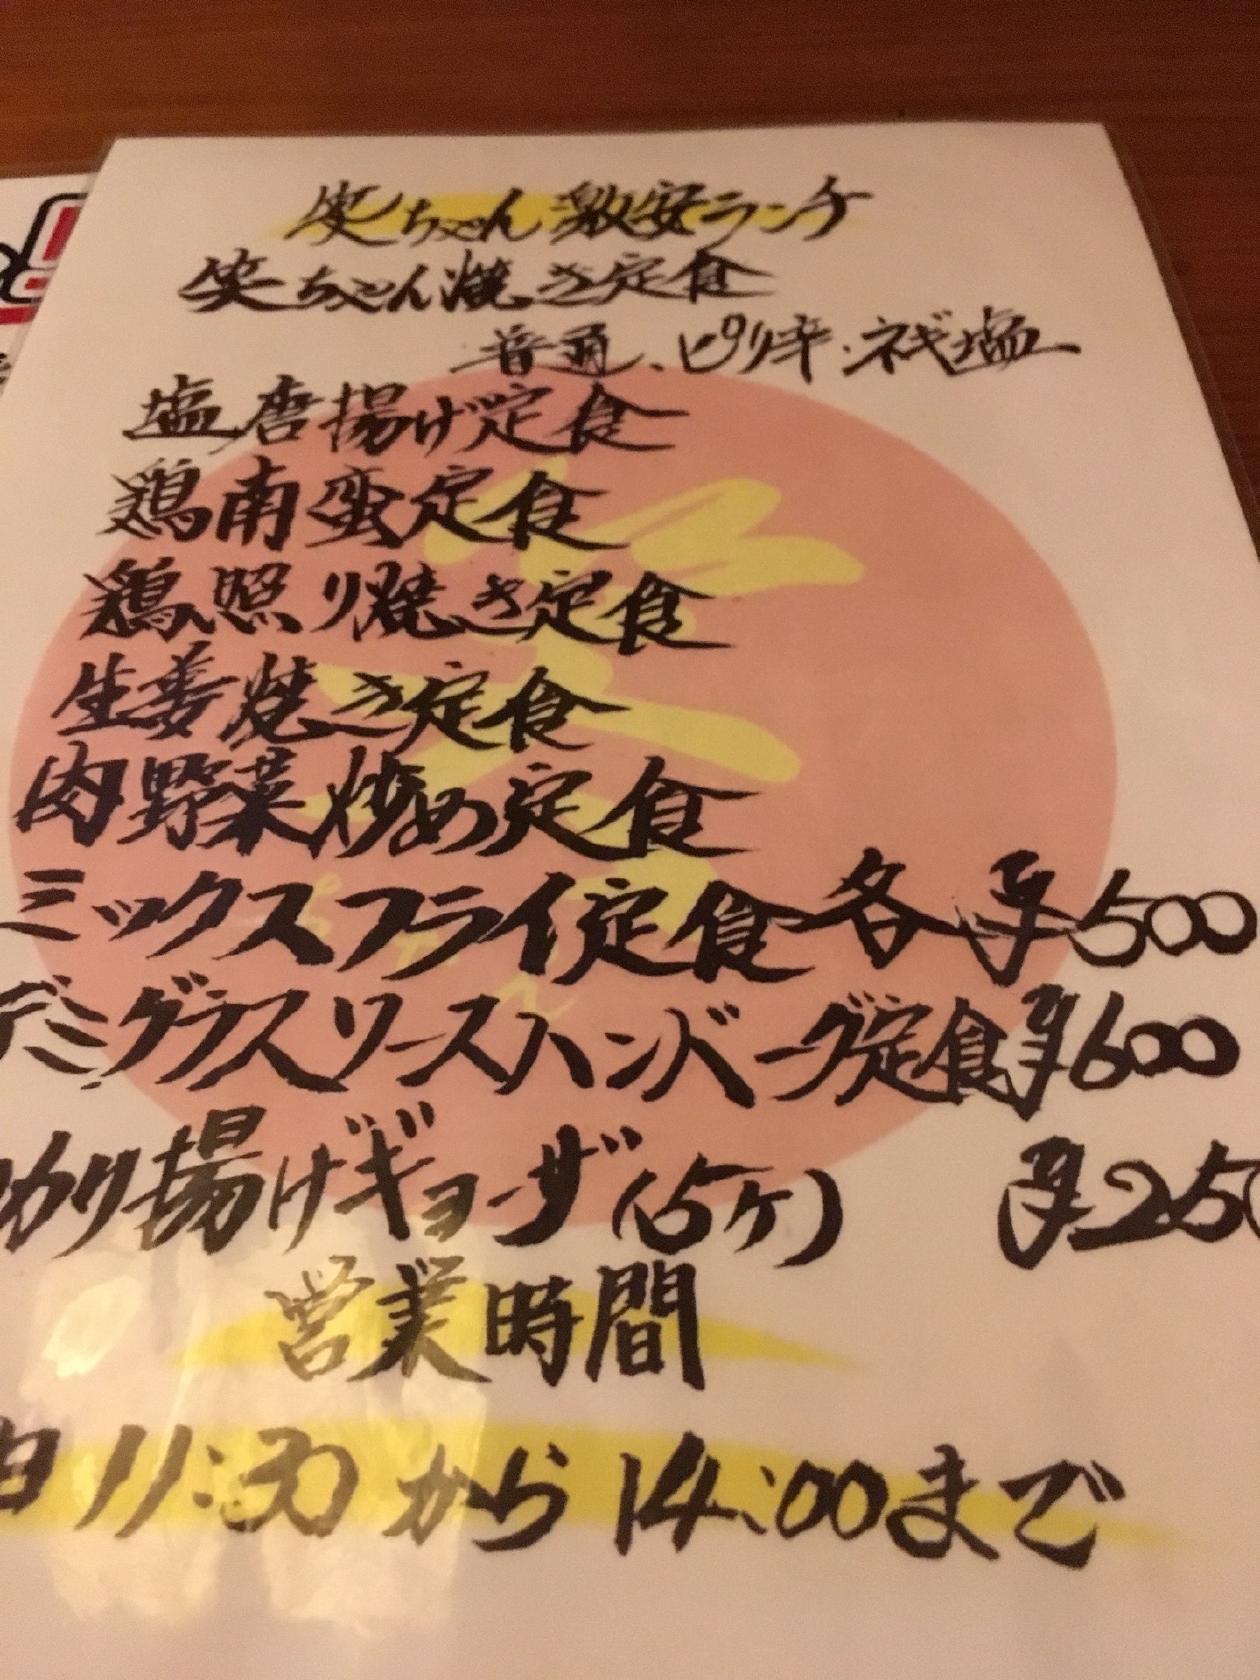 笑ちゃん激安ランチ
笑ちゃん焼き定食
普通、ピリ辛、ネギ塩
塩唐揚げ定食
鶏南蛮定食
鶏照り焼き定食
生姜焼き定食
肉野菜炒め定食
ミックスフライ定食各¥500
デミグラスソースハンバーグ定食¥600
カリ揚げギョーザ(5ケ) ¥250
営業時間
日11:30から14:00まで